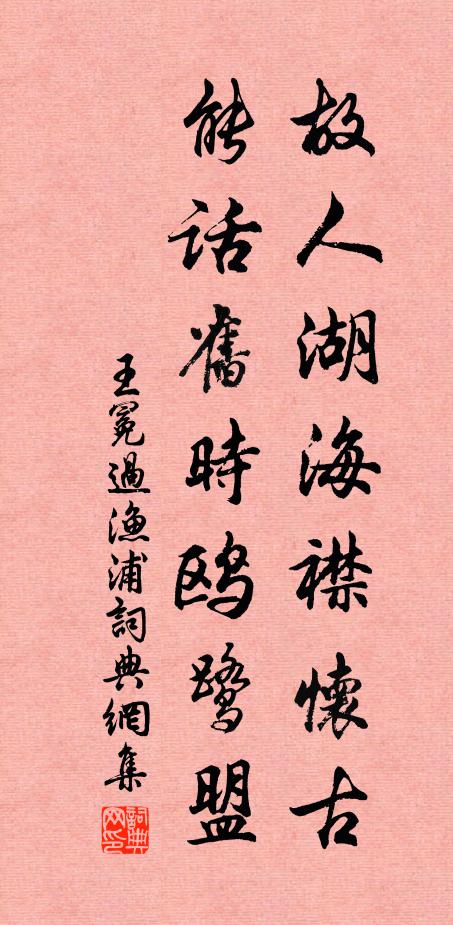 故人湖海襟懷古
能話舊時鷗鷺盟
王冕過漁浦詞典網集
詞典网印